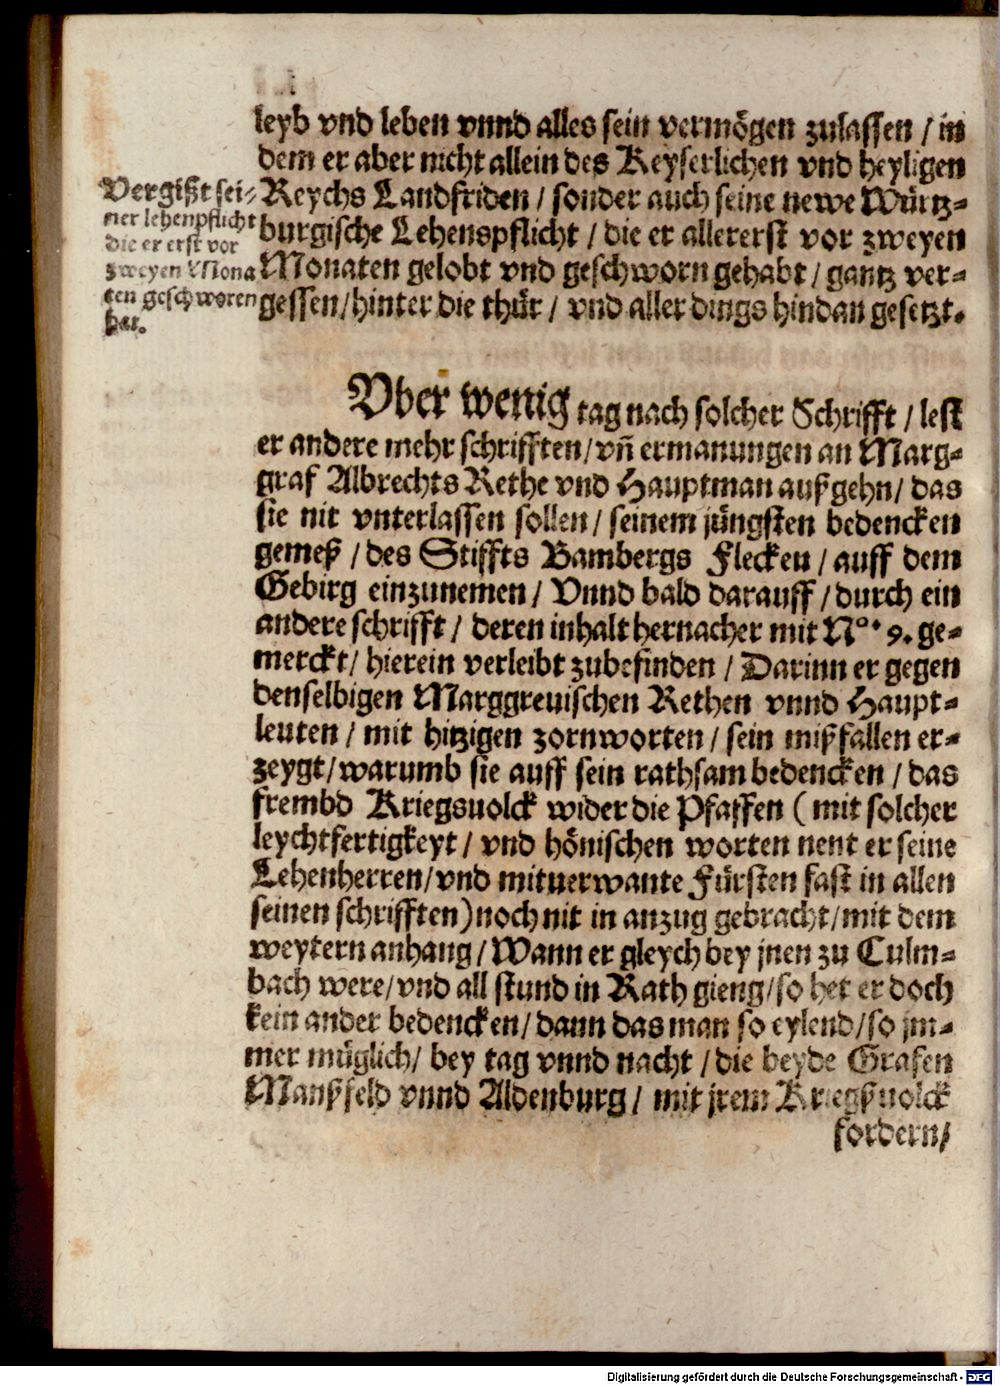 leyb vnd leben vnnd alles sein vermögen zulassen / in
dem er aber nicht allein des Keyserlichen vnd heyligen
Reychs Landfriden / sonder auch seine newe Würtz-
burgische Lehenspflicht / die er allererst vor zweyen
Monaten gelobt vnd geschworn gehabt / gantz ver-
gessen / hinter die thür / vnd aller dings hindan gesetzt.
Vergißt sei-
ner lehenpflicht
die er erst vor
zweyen Mona
ten geschworen
hat.
Vber wenig tag nach solcher Schrifft / lest
er andere mehr schrifften / vñ ermanungen an Marg-
graf Albrechts Rethe vnd Hauptman außgehn / das
sie nit vnterlassen sollen / seinem jüngsten bedencken
gemeß / des Stiffts Bambergs Flecken / auff dem
Gebirg einzunemen / Vnnd bald darauff / durch ein
andere schrifft / deren inhalt hernacher mit No. 9. ge-
merckt / hierein verleibt zubefinden / Darinn er gegen
denselbigen Marggreuischen Rethen vnnd Haupt-
leuten / mit hitzigen zornworten / sein mißfallen er-
zeygt / warumb sie auff sein rathsam bedencken / das
frembd Kriegsuolck wider die Pfaffen ( mit solcher
leychtfertigkeyt / vnd hönischen worten nent er seine
Lehenherren / vnd mituerwante Fürsten fast in allen
seinen schrifften ) noch nit in anzug gebracht / mit dem
weytern anhang / Wann er gleych bey jnen zu Culm-
bach were / vnd all stund in Rath gieng / so het er doch
kein ander bedencken / dann das man so eylend / so jm-
mer müglich / bey tag vnnd nacht / die beyde Grafen
Manßfeld vnnd Aldenburg / mit jrem Kriegßuolck
fordern /
Digitalisierung gefördert durch die Deutsche Forschungsgemeinschaft - DFG